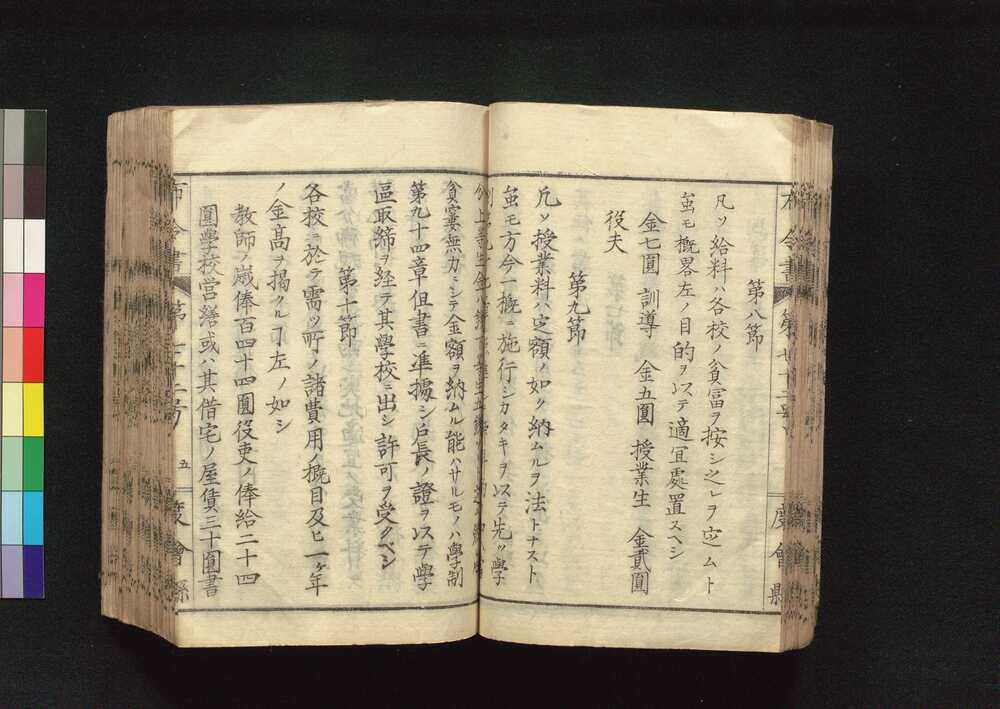 第八節
凡ソ給料ハ各校ノ貧富ヲ按シ之レヲ定ムト
茁モ概畧左ノ目的ヲ以テ適宜處置スヘシ
金七圓 訓導 金五圓 授業生 金貳圓
役夫
第九節
凡ソ授業料ハ定額ノ如ク納ムルヲ法トナスト
茁モ方今一概ニ施行シカタキヲ以テ先ツ學
貧窶無力ニシテ金額ヲ納ムル能ハサルモノハ學制
第九十四章但書ニ準據シ戸長ノ證ヲ以テ學
區取締ヲ経テ其學校ニ出シ許可ヲ受クベシ
第十節
各校ニ於テ需ツ所ノ諸費用ノ概目及ヒ一ヶ年
ノ金高ヲ掲クル⿰左ノ如シ
教師ノ歳俸百四十四圓役吏ノ俸給二十四
圓學校営繕或ハ其借宅ノ屋賃三十圓書
布令書 第七十二号 五 度會縣